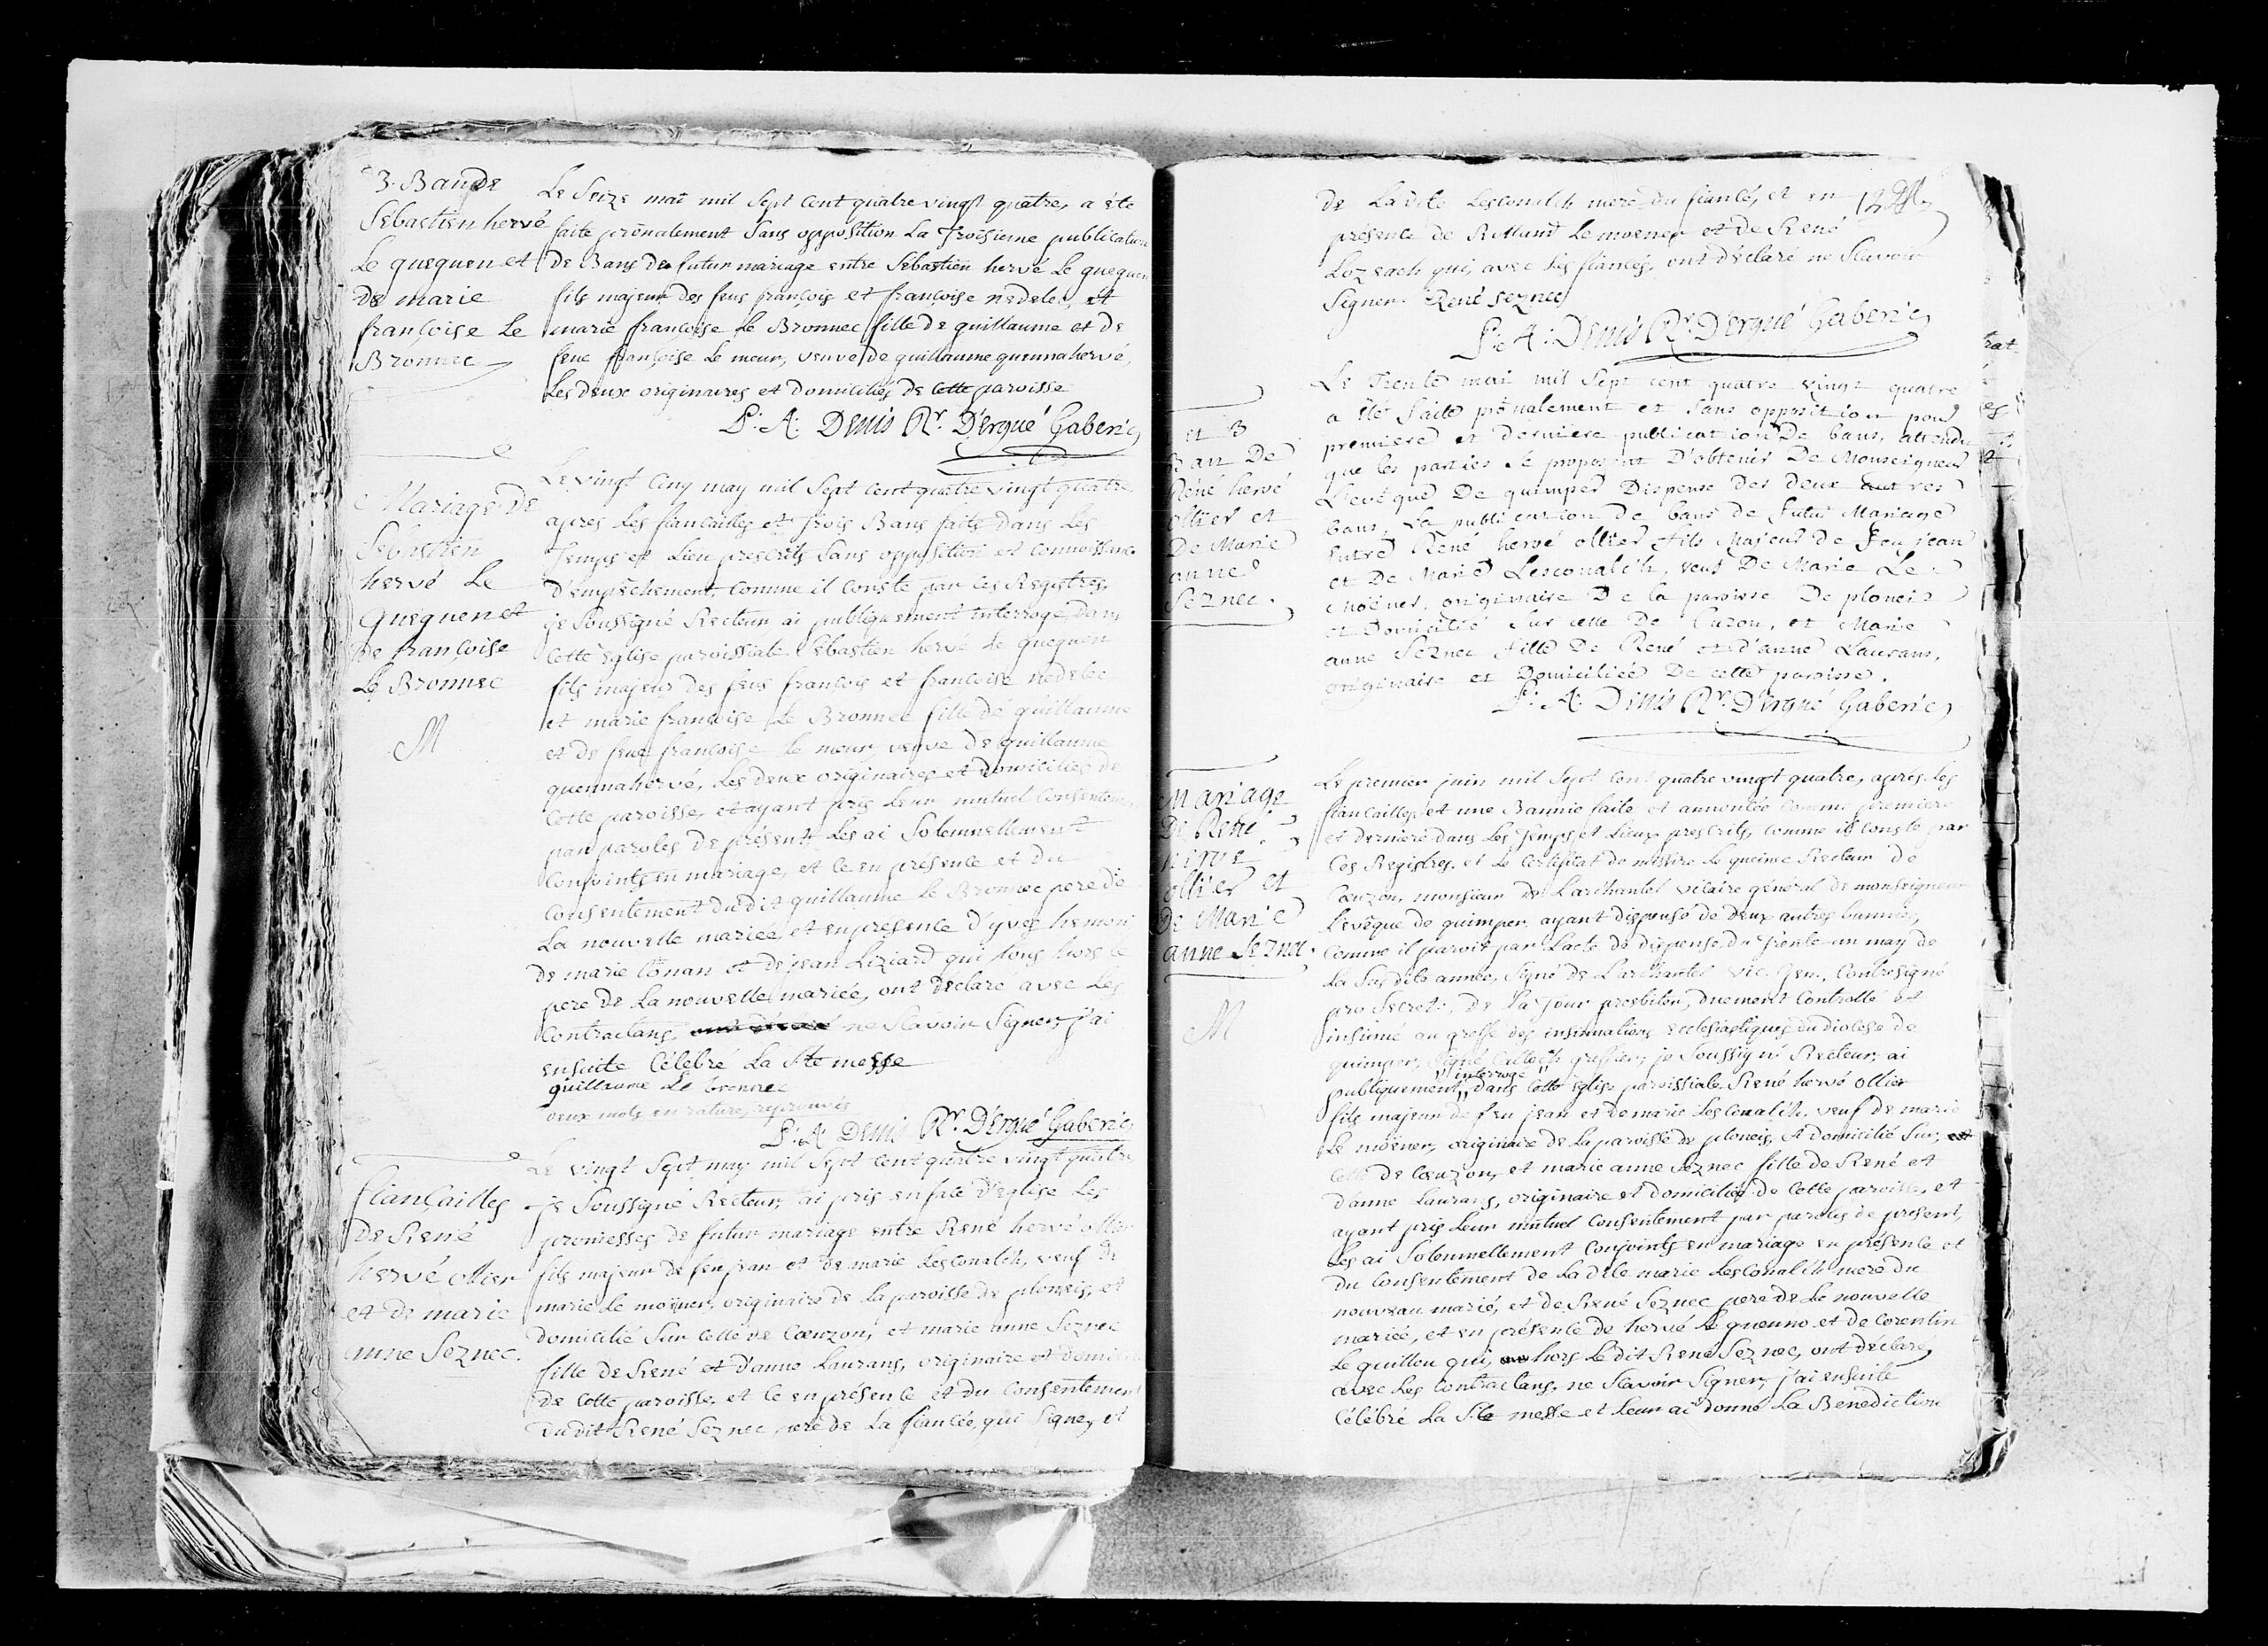 3. Ban de
Sebastien hervé
Le queguen et
de marie
françoise Le
Bronnec
Le Seize mai mil Sept Cent quatre vingt quatre, a été
faite prônalement Sans opposition La Troisieme publication
de Bans de futur mariage entre Sebastien hervé Le queguen
fils majeur des feus françois et françoise nedelec, et
marie françoise Le Bronnec fille de guillaume et de
feue françoise Le meur, veuve de guillaume quennahervé,
Les deux originaires et domiciliés de Cette paroisse
P: A: Denis Rr. D'ergué Gaberic
Mariage de
Sebastien
hervé Le
queguen et
de françoise
Le Bronnec
M
Le vingt Cinq may mil Sept Cent quatre vingt quatre
apres Les fiancailles et Trois Bans faits dans Les
Temps et Lieu prescrits Sans opposition et Connoissance
d'empêchement, Comme il Conste par Ces Registres,
je Soussigné Recteur ai publiquement interrogé dans
Cette Eglise paroissiale Sebastien hervé Le queguen
fils majeur des feus françois et françoise nedelec
et marie françoise Le Bronnec fille de guillaume
et de feue françoise Le meur, veuve de guillaume
quennahervé, Les deux originaires et domiciliés de
Cette paroisse, et ayant pris Leur mutuel Consentem
par paroles de présent, Les ai Solemnellement
Conjoints en mariage, et ce en présence et du
Consentement dudit guillaume Le Bronnec pere de
La nouvelle mariée, et en présence d'yves hemon
de marie Conan et de jean Liziard qui tous hors le
pere de La nouvelle mariée, ont declaré avec Les
Contractans, ne Scavoir Signer, j'ai
ensuite Célébré La Ste messe
guillaume Le bronnec
deux mots en rature, reprouvés
P: A: Denis Rr. D'Ergué Gaberic
fiançailles
de René
hervé ollier
et de marie
anne Seznec.
Le vingt Sept may mil Sept Cent quatre vingt quatre
je Soussigné Recteur, ai pris en face d'église Les
promesses de futur mariage entre René hervé ollier
fils majeur de feu jean et de marie Lesconalch, veuf de
marie Le moënner, originaire de La paroisse de ploneis, et
domicilié Sur Celle de Cœuzon, et marie anne Seznec
fille de René et d'anne Laurans, originaire et domici
de Cette paroisse, et Ce en présence et du Consentement
dudit René Seznec pere de La fiancée, qui Signe, et
de Ladite Lesconalch mere du fiancé, et en
présence de Rolland Le moenner et de René
Lozeach qui, avec Les fiancés, ont déclaré ne Scavoir
Signer. René Seznec
P: A: Denis Rr. D'ergué Gaberic
12
et 3
Ban De
René hervé
ollier et
De Marie
anne
Seznec.
Le Trente mai mil Sept cent quatre vingt quatre
a été faite prônalement et sans opposition pour
premiere et derniere publication De bans, attendu
que les parties se proposent D'obtenir De Monseigneur
L'evêque De quimper Dispense Des deux autres
bans. La publication de bans de futur Mariage
Entre René hervé ollier fils Majeur de Feu jean
et De Marie Lesconalch, veuf De Marie Le
Moënner, originaire De la paroisse De ploneis
et Domicilié sur celle De Cuzon, et Marie
anne Seznec fille De René et d'anne Laurans,
originaire et Domiciliée De cette paroisse.
P: A: Denis Rr. D'ergué Gaberic
Mariage
De René
herve
ollier et
De Marie
anne Seznec.
M
Le premier juin mil Sept Cent quatre vingt quatre, apres Les
fiancailles et une Bannie faite et annoncée Comme premiere
et derniere dans Les Temps et Lieux prescrits, Comme il Conste par
Ces Registres et Le Certificat de messire Le queinec Recteur de
Cœuzon, monsieur de Larchantel vicaire général de monseigneur
L'evêque de quimper ayant dispensé de deux autres bannies,
Comme il paroit par L'acte de dispense, du trente-un may de
La Susdite année, Signé de Larchantel vic. gen. Contresigné
pro Secret: de La jour presbiter, duement Controllé et
insinué au greffe des insinuations ecclésiastiques du diocese de
quimper, Signé greffier, je Soussigné Recteur, ai
publiquement "interrogé" dans Cette Eglise paroissiale René hervé ollier
fils majeur de feu jean et de marie Lesconalch, veuf de marie
Le moënner, originaire de La paroisse de ploneis, et domicilié Sur
Celle de Cœuzon, et marie anne Seznec fille de René et
d'anne Laurans, originaire et domiciliée de Cette paroisse, et
ayant pris Leur mutuel Consentement par paroles de présent,
Les ai Solemnellement Conjoints en mariage en présence et
du Consentement de Ladite marie Lesconalch mere du
nouveau marié, et de René Seznec pere de La nouvelle
mariée, et en présence de hervé Le guenno et de Corentin
Le guillou qui, hors Le dit René Seznec, ont déclaré
avec Les Contractans, ne Scavoir Signer, j'ai ensuite
Célébré La Ste messe et Leur ai donné La Benediction